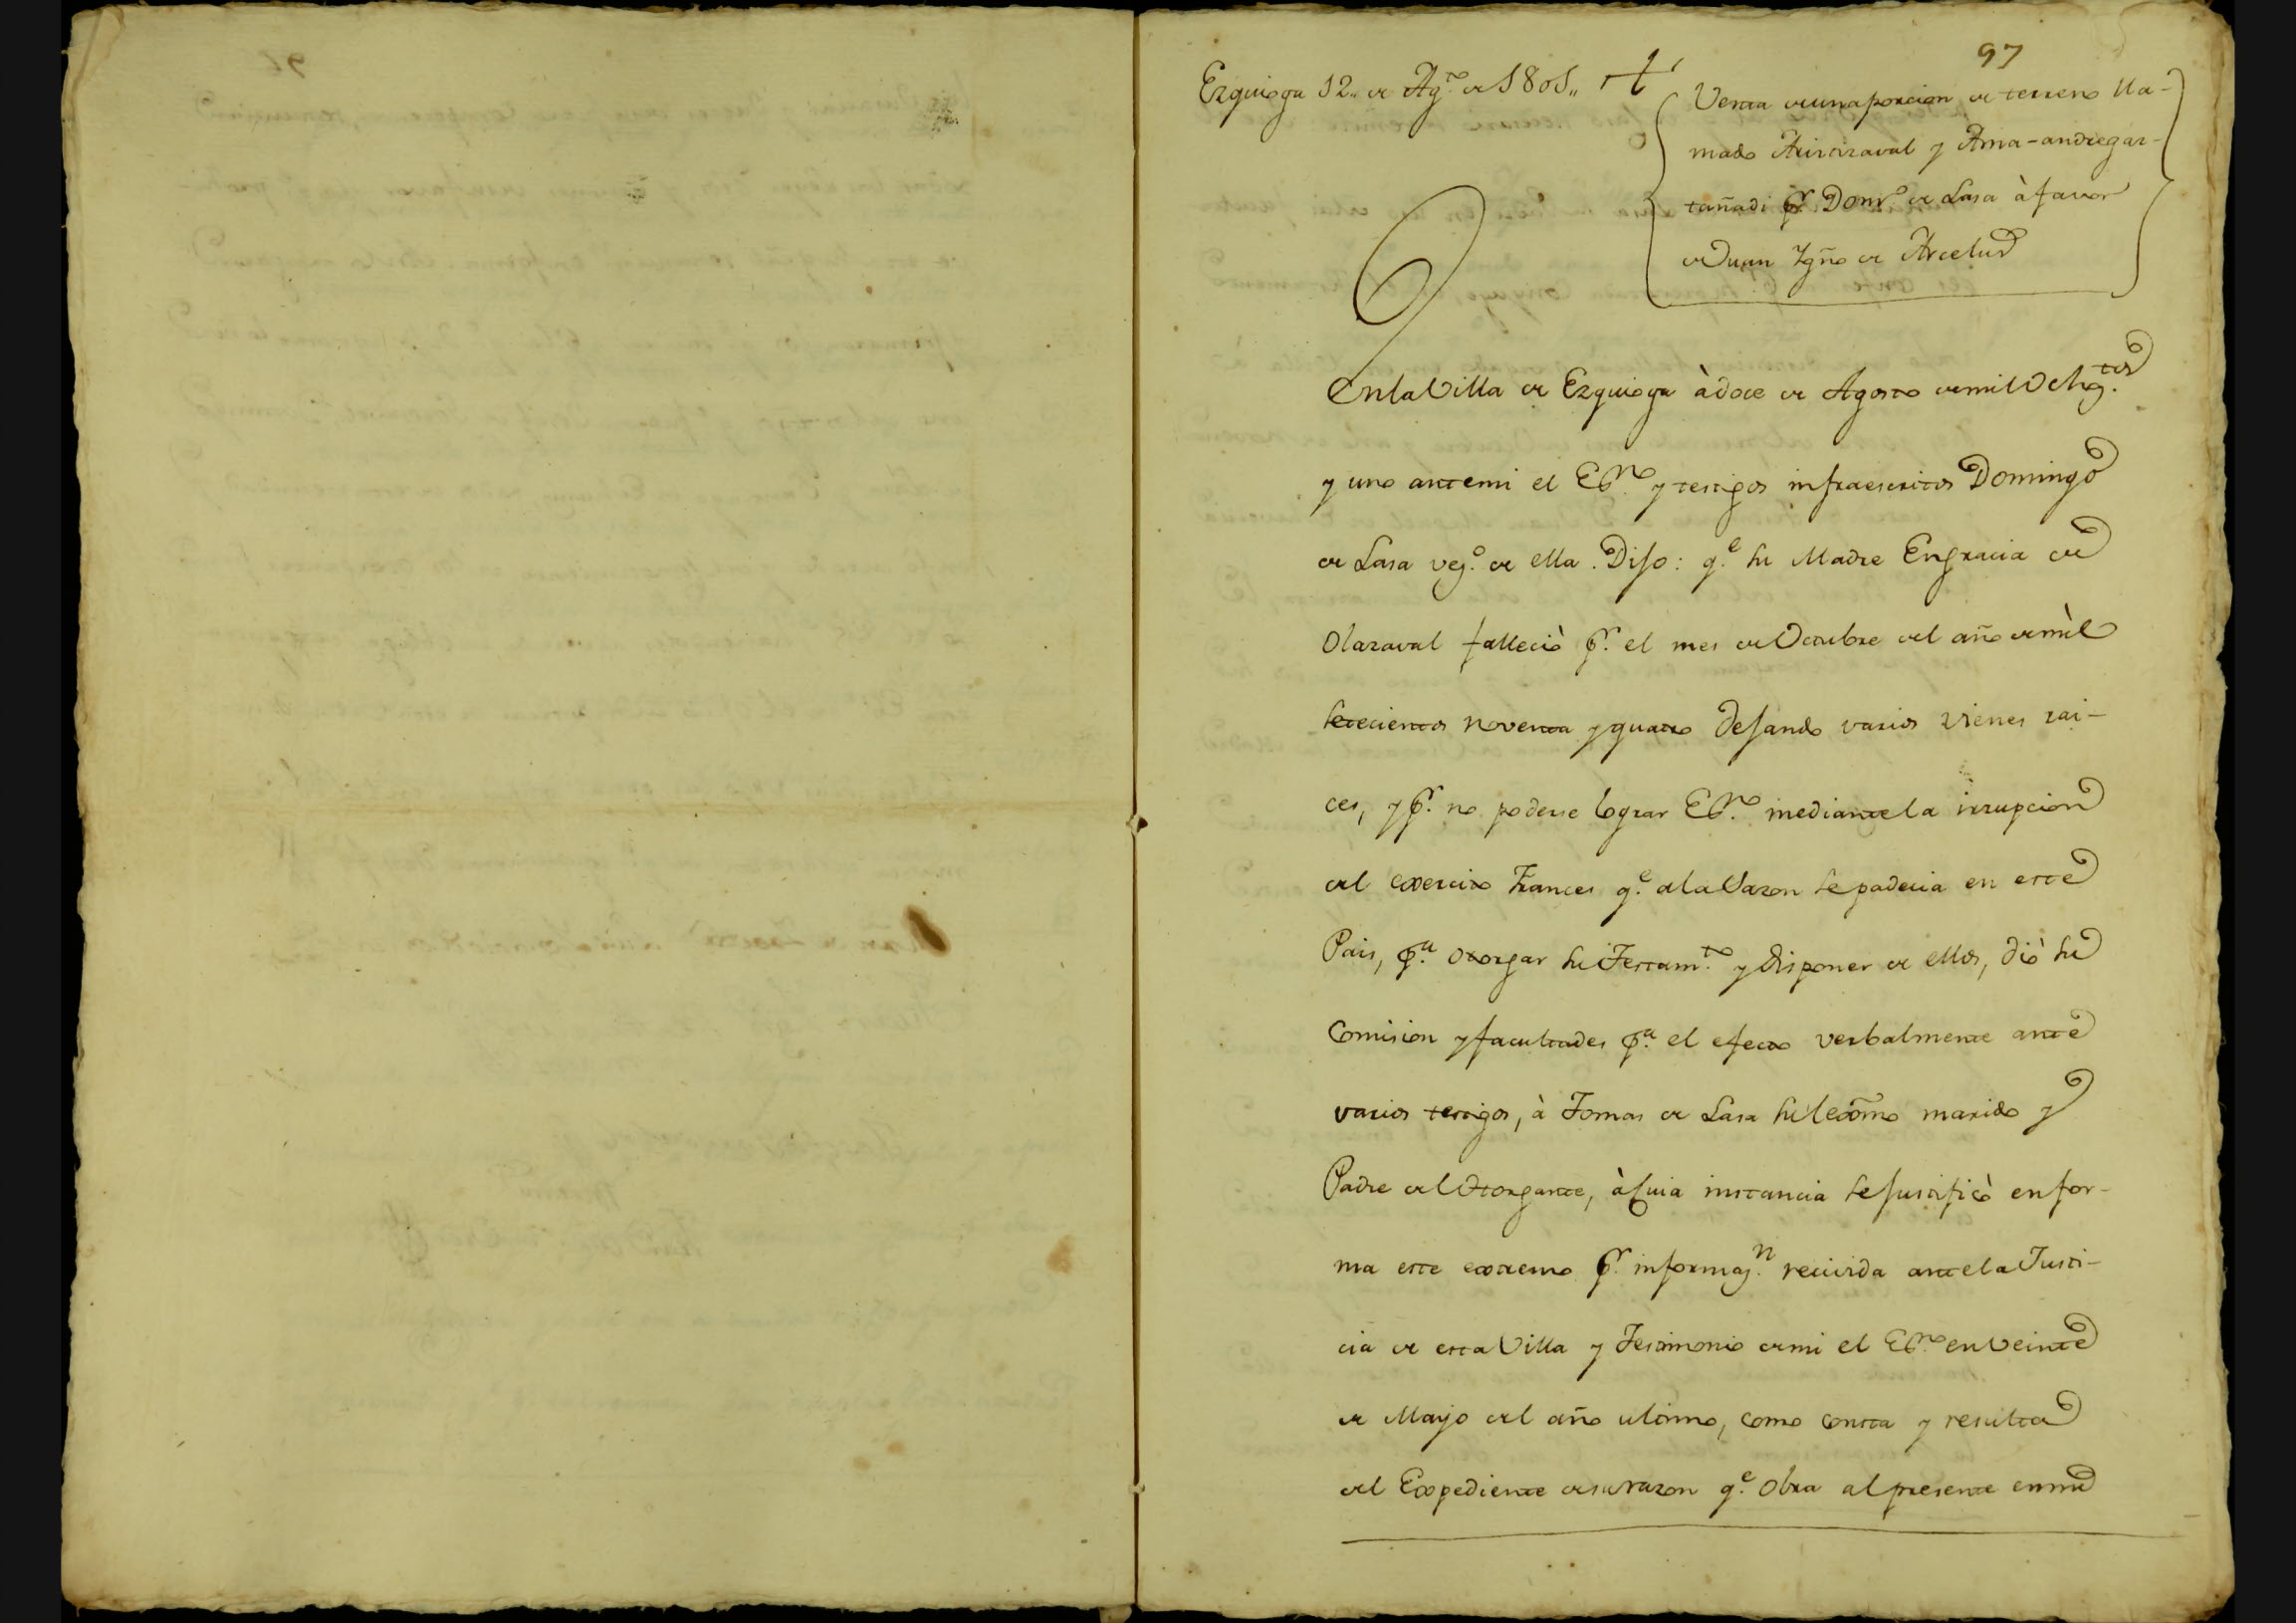 97
Ezquioga 12,, de Ag.to de 1801,,
Venta de una porcion de terreno lla-
mado Aristizaval y Ama-andregar-
tañadi pr. Dom.o de Lasa à favor
de Juan Ygño de Arcelus
En la Villa de Ezquioga à doce de Agosto de mil Ochoz.tos
y uno ante mi el Es.no y testigos infraescritos Domingo
de Lasa vez.o de ella. Dijo: q.e su Madre Engracia de
Olazaval falleciò pr. el mes de Octubre del año de mìl
setecientos noventa y quatro dejando varios vienes rai-
ces, y pr. no poderse lograr Es.no mediante la irrupcion
del exercito Frances q.e a la Sazon se padecia en este
Pais, p.a otorgar su Testam.to y disponer de ellos, diò su
Comision y facultades p.a el efecto verbalmente ante
varios testigos, à Tomas de Lasa su lexmo marido y
Padre del Otorgante, à cuia instancia se justificò en for-
ma este extremo pr. informaz.n recivida ante la Justi-
cia de esta Villa y Testimonio de mi el Es.no en Veinte
de Mayo del año ultimo, como consta y resulta
del Expediente de su razon q.e obra al presente en mi